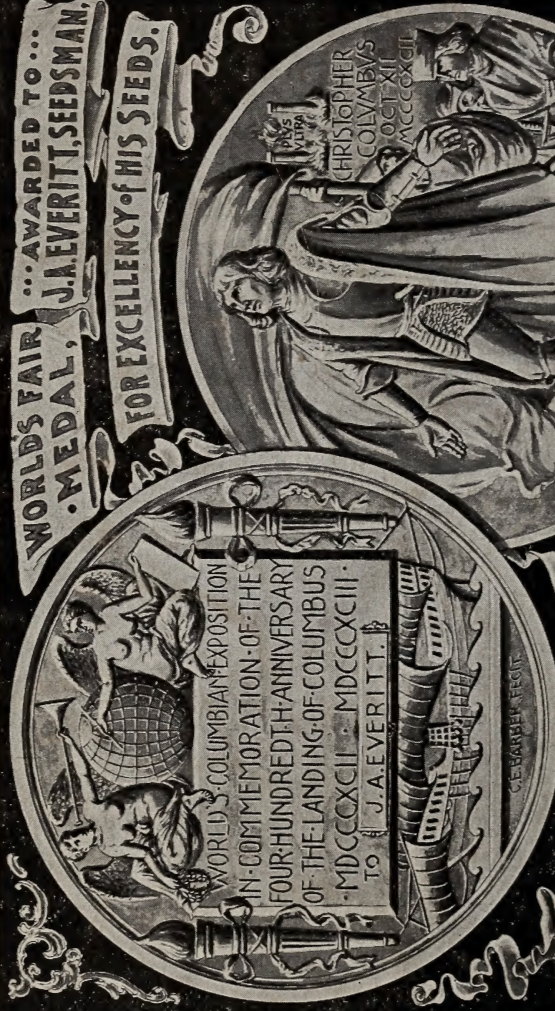 WORLD'S FAIR ...AWARDED TO...
·MEDAL, J.A.EVERITT, SEEDSMAN,
FOR EXCELLENCY of HIS SEEDS.
WORLD'S·COLUMBIAN·EXPOSITION
IN·COMMEMORATION·OF·THE
FOUR·HUNDREDTH·ANNIVERSARY
OF·THE·LANDING·OF·COLUMBUS
·MDCCCXCII· MDCCCXCIII·
TO J.A.EVERITT.
C.E.BARBER FECIT.
PLVS
VLTRA
CHRISTOPHER
COLVMBVS
OCT·XII
MCCCCXCII